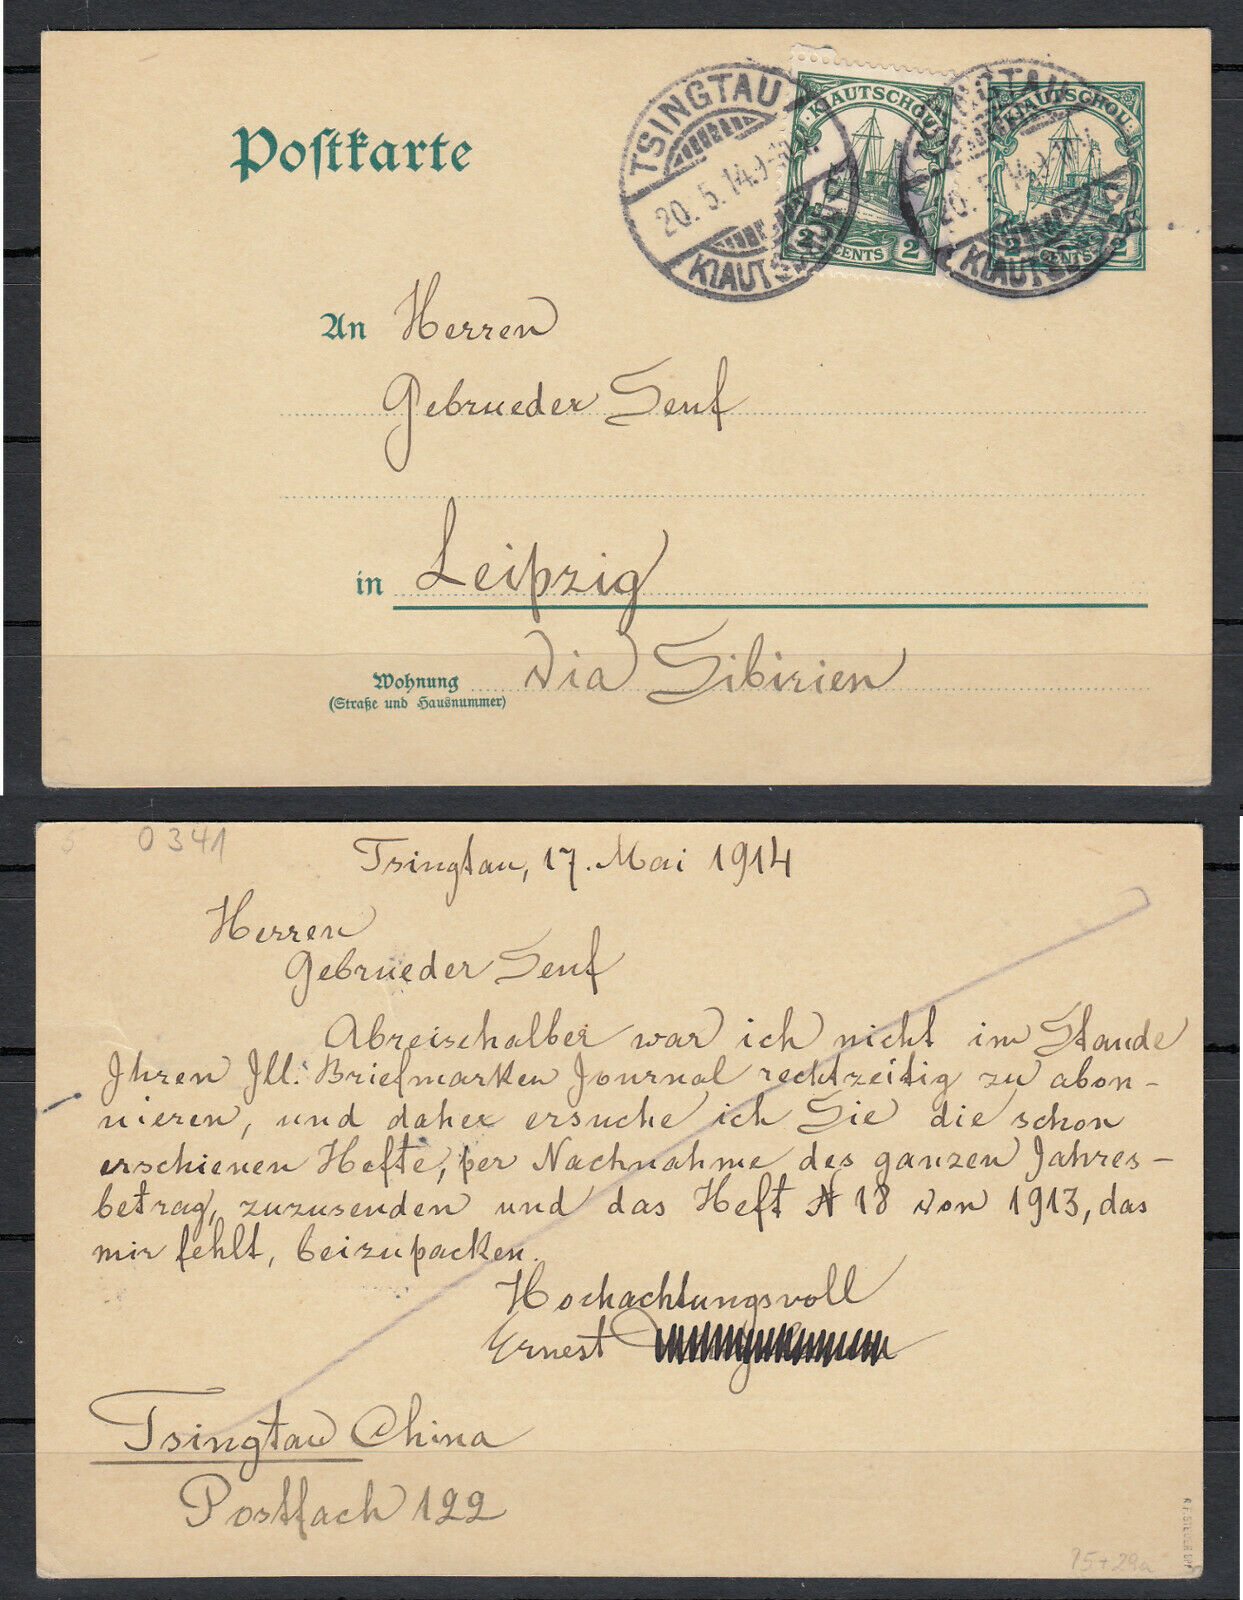 Postkarte
TSINGTAU
20.5.14.9-10
KIAUTSCHOU
KIAUTSCHOU
2 CENTS 2
TSINGTAU
20.5.14.9
KIAUTSCHOU
KIAUTSCHOU
2 CENTS 2
An Herren
Gebrueder Senf
in Leipzig
Via Sibirien
Wohnung
(Straße und Hausnummer)
5 0341
Tsingtau, 17. Mai 1914
Herren
Gebrueder Senf
Abreischalber war ich nicht im Stande
Ihren Ill. Briefmarken Journal rechtzeitig zu abon-
nieren, und daher ersuche ich Sie die schon
erschienen Hefte, per Nachnahme des ganzen Jahres-
betrag, zuzusenden und das Heft N 18 von 1913, das
mir fehlt, beizupacken.
Hochachtungsvoll
Ernest
Tsingtau China
Postfach 122
15+29a